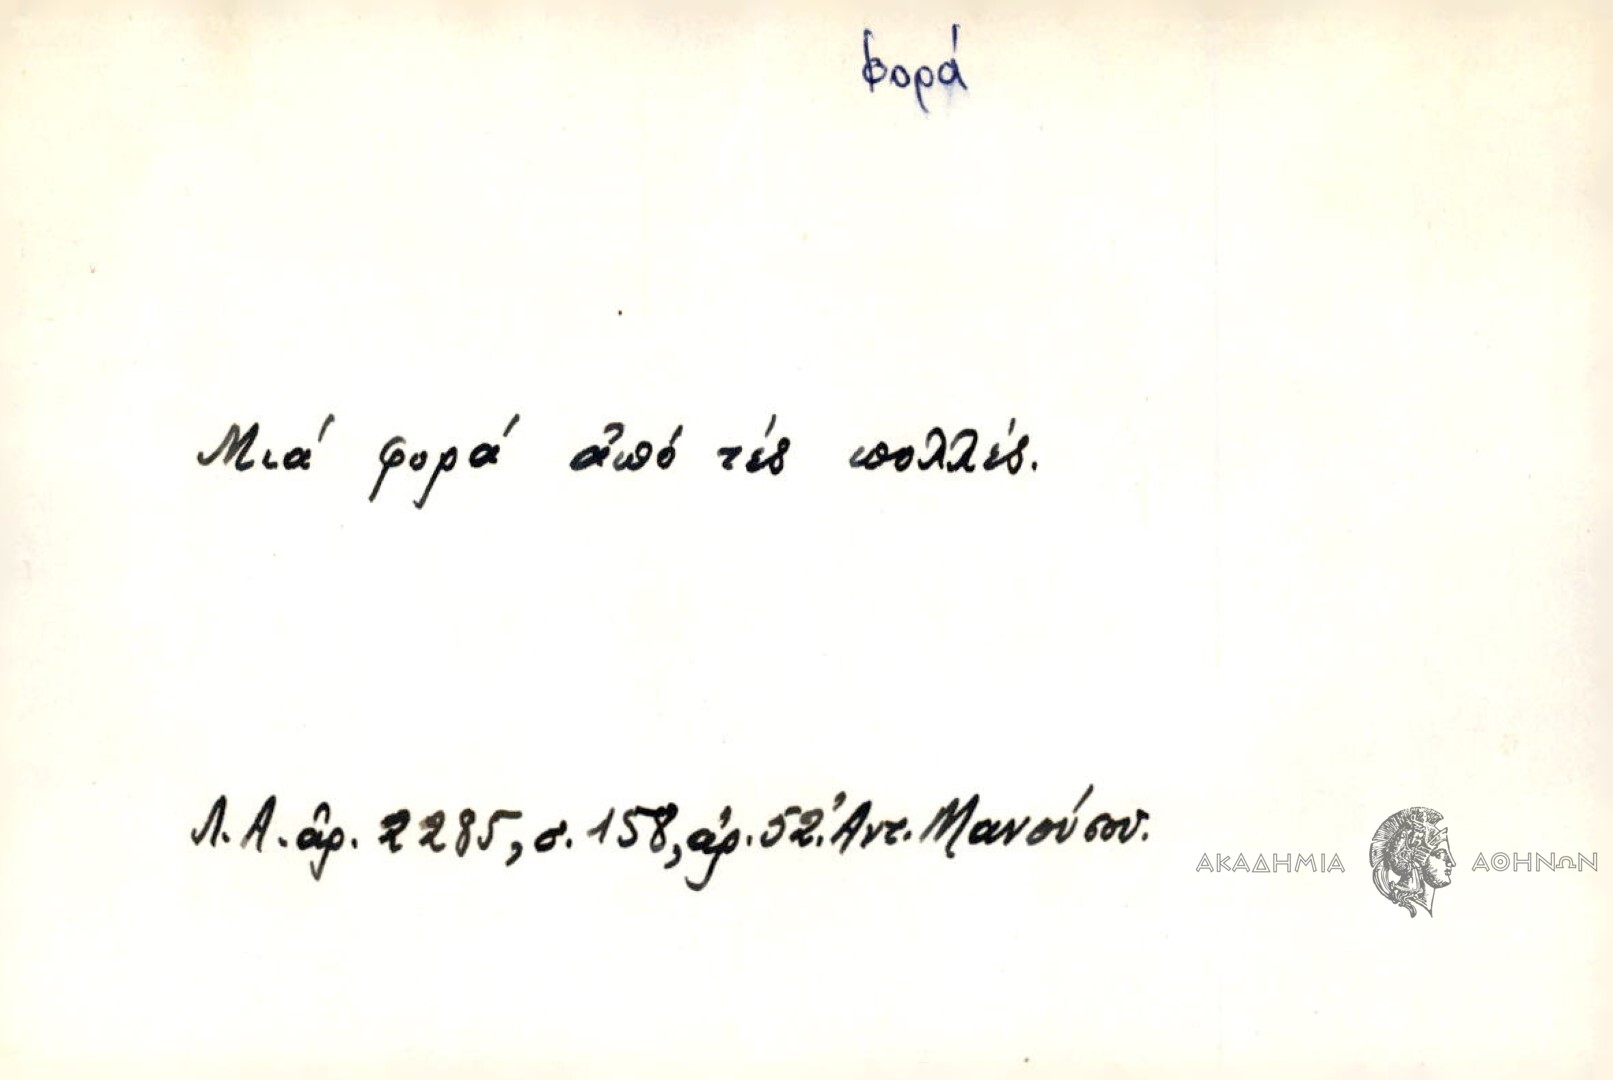 φορά
Μιά φορά ἀπό τές πολλές.
Λ.Α. ἀρ. 2285, σ. 158, ἀρ. 52. Ἀντ. Μανούσου.
ΑΚΑΔΗΜΙΑ ΑΘΗΝΩΝ